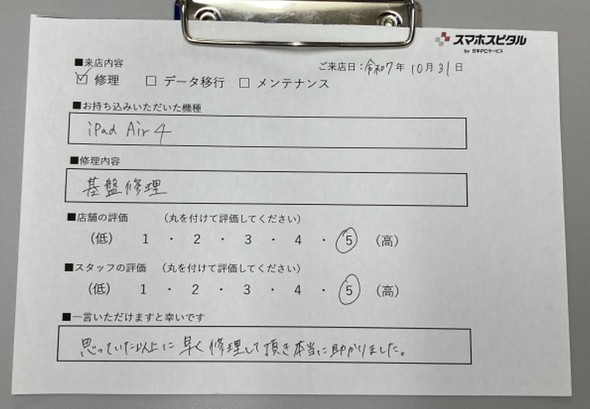 スマホスピタル
by 日本PCサービス
■来店内容
ご来店日：令和7年 10月31日
☑ 修理 □ データ移行 □ メンテナンス
■お持ち込みいただいた機種
iPad Air 4
■修理内容
基盤修理
■店舗の評価 （丸を付けて評価してください）
（低） 1 ・ 2 ・ 3 ・ 4 ・ 5 （高）
■スタッフの評価 （丸を付けて評価してください）
（低） 1 ・ 2 ・ 3 ・ 4 ・ 5 （高）
■一言いただけますと幸いです
思っていた以上に早く修理して頂き本当に助かりました。